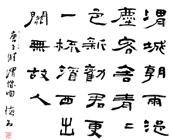 渭城朝雨浥輕
塵客舍青青柳
色新勸君更盡
一杯酒西出陽
關無故人